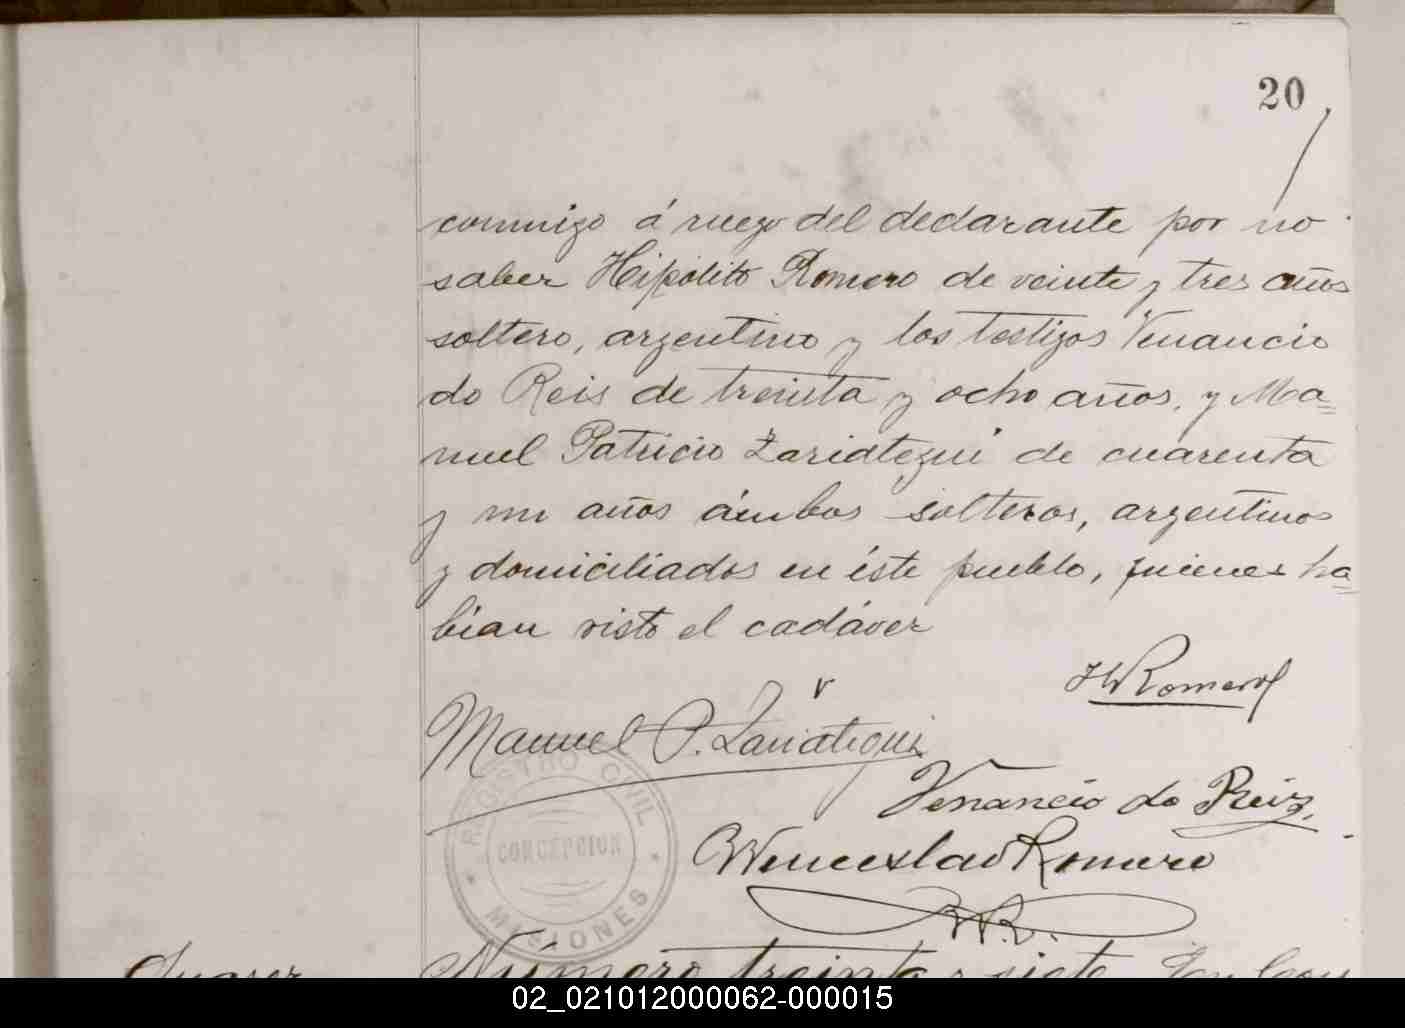 20
conmigo á ruego del declarante por no
saber Hipólito Romero de veinte y tres años
soltero, argentino y los testigos Venancio
do Reis de treinta y ocho años, y Ma=
nuel Patricio Zariátegui de cuarenta
y un años ámbos solteros, argentinos
y domiciliados en éste pueblo, quienes ha=
bian visto el cadáver
H Romero
Manuel P. Zariátegui
Venancio do Reiz.
Wenceslao Romero
W.R.
REGISTRO CIVIL
CONCEPCION
MISIONES
Número treinta y siete
02_021012000062-000015